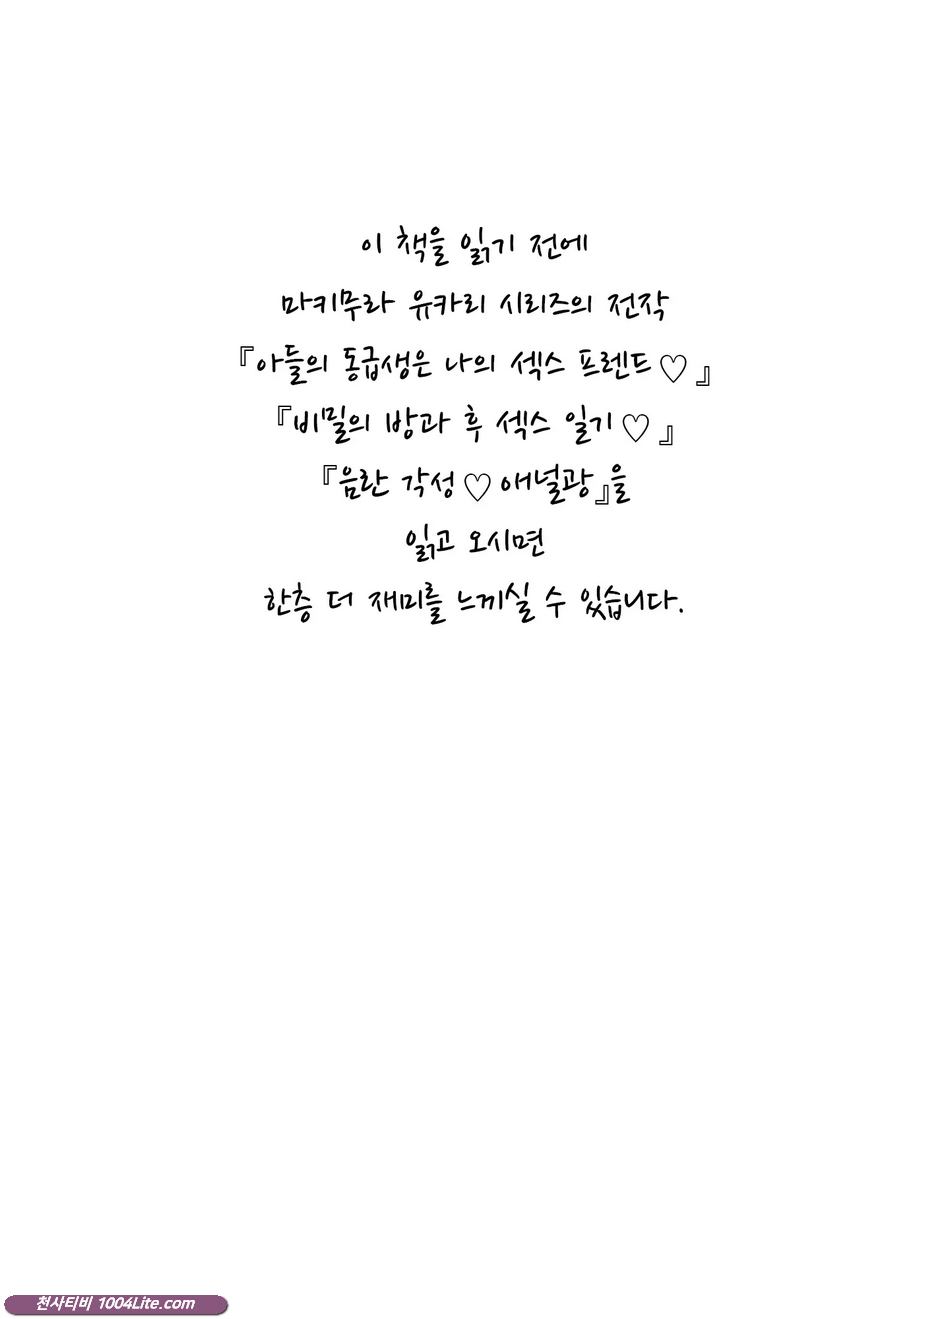 이 책을 읽기 전에
마키무라 유카리 시리즈의 전작
『아들의 동급생은 나의 섹스 프렌드♡』
『비밀의 방과 후 섹스 일기♡』
『음란 각성♡애널광』을
읽고 오시면
한층 더 재미를 느끼실 수 있습니다.
천사티비 1004Lite.com